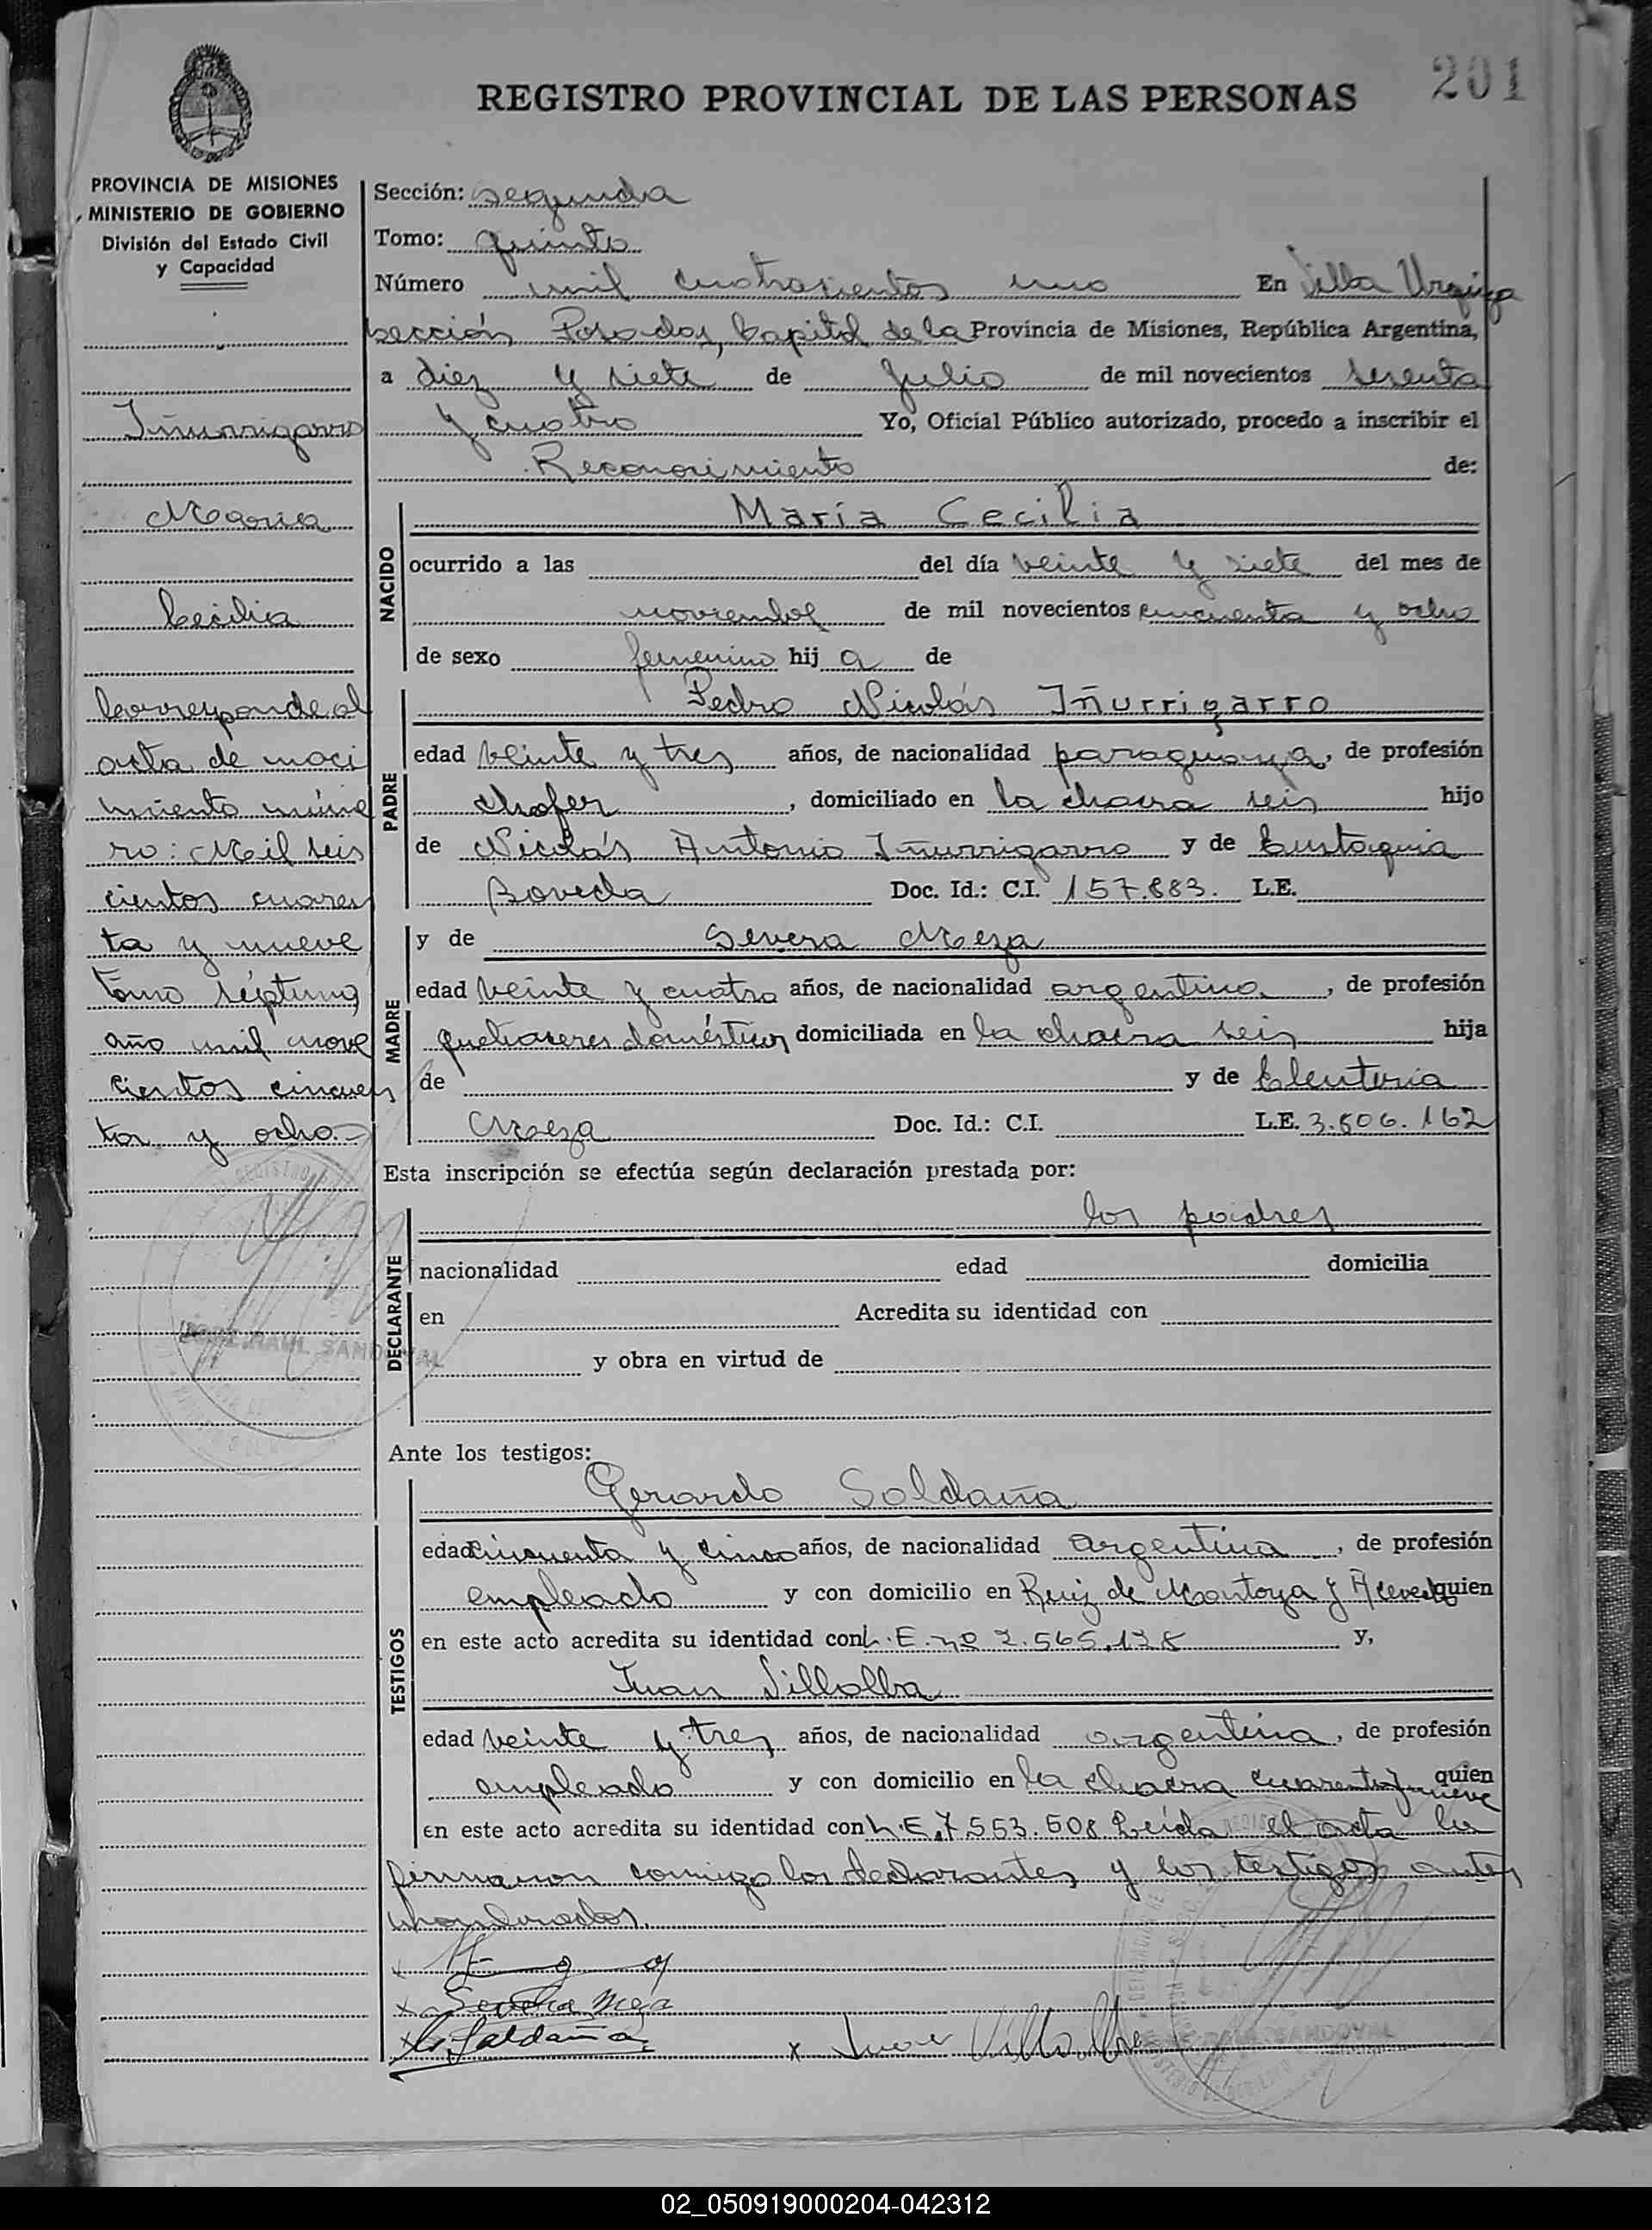 201
REGISTRO PROVINCIAL DE LAS PERSONAS
PROVINCIA DE MISIONES
MINISTERIO DE GOBIERNO
División del Estado Civil
y Capacidad
Iñurrigarro
Maria
Cecilia
Corresponde al
acta de naci
miento núme
ro: Mil seis
cientos cuaren
ta y nueve
tomo séptimo
año mil nove
cientos cincuen
ta y ocho.-
Sección: segunda
Tomo: quinto
Número mil cuatrocientos uno En Villa Urquiza
sección Posadas, Capital de la Provincia de Misiones, República Argentina,
a diez y siete de Julio de mil novecientos sesenta
y cuatro Yo, Oficial Público autorizado, procedo a inscribir el
Reconocimiento de:
NACIDO
María Cecilia
ocurrido a las del día veinte y siete del mes de
noviembre de mil novecientos cincuenta y ocho
de sexo femenino hij a de
PADRE
Pedro Nicolás Iñurrigarro
edad veinte y tres años, de nacionalidad paraguaya, de profesión
chofer, domiciliado en la chacra seis hijo
de Nicolás Antonio Iñurrigarro y de Eustaquia
Boveda Doc. Id.: C.I. 157.883. L.E.
MADRE
y de Severa Meza
edad veinte y cuatro años, de nacionalidad argentina, de profesión
quehaceres domésticos domiciliada en la chacra seis hija
de y de Eleuteria
Meza Doc. Id.: C.I. L.E. 3.506.162
Esta inscripción se efectúa según declaración prestada por:
DECLARANTE
los padres
nacionalidad edad domicilia
en Acredita su identidad con
y obra en virtud de
RAUL SANDOVAL
Ante los testigos:
TESTIGOS
Gerardo Soldaña
edad cincuenta y cinco años, de nacionalidad argentina, de profesión
empleado y con domicilio en Ruiz de Montoya y quien
en este acto acredita su identidad con L.E. nº 2.565.138 y,
Juan Villalba
edad veinte y tres años, de nacionalidad argentina, de profesión
empleado y con domicilio en la chacra cuarenta y nueve quien
en este acto acredita su identidad con L.E. 7.553.508 Leída el acta la
firmaron conmigo los declarantes y los testigos antes
nombrados.
Meza
Saldaña
Juan Villalba
SANDOVAL
02_050919000204-042312